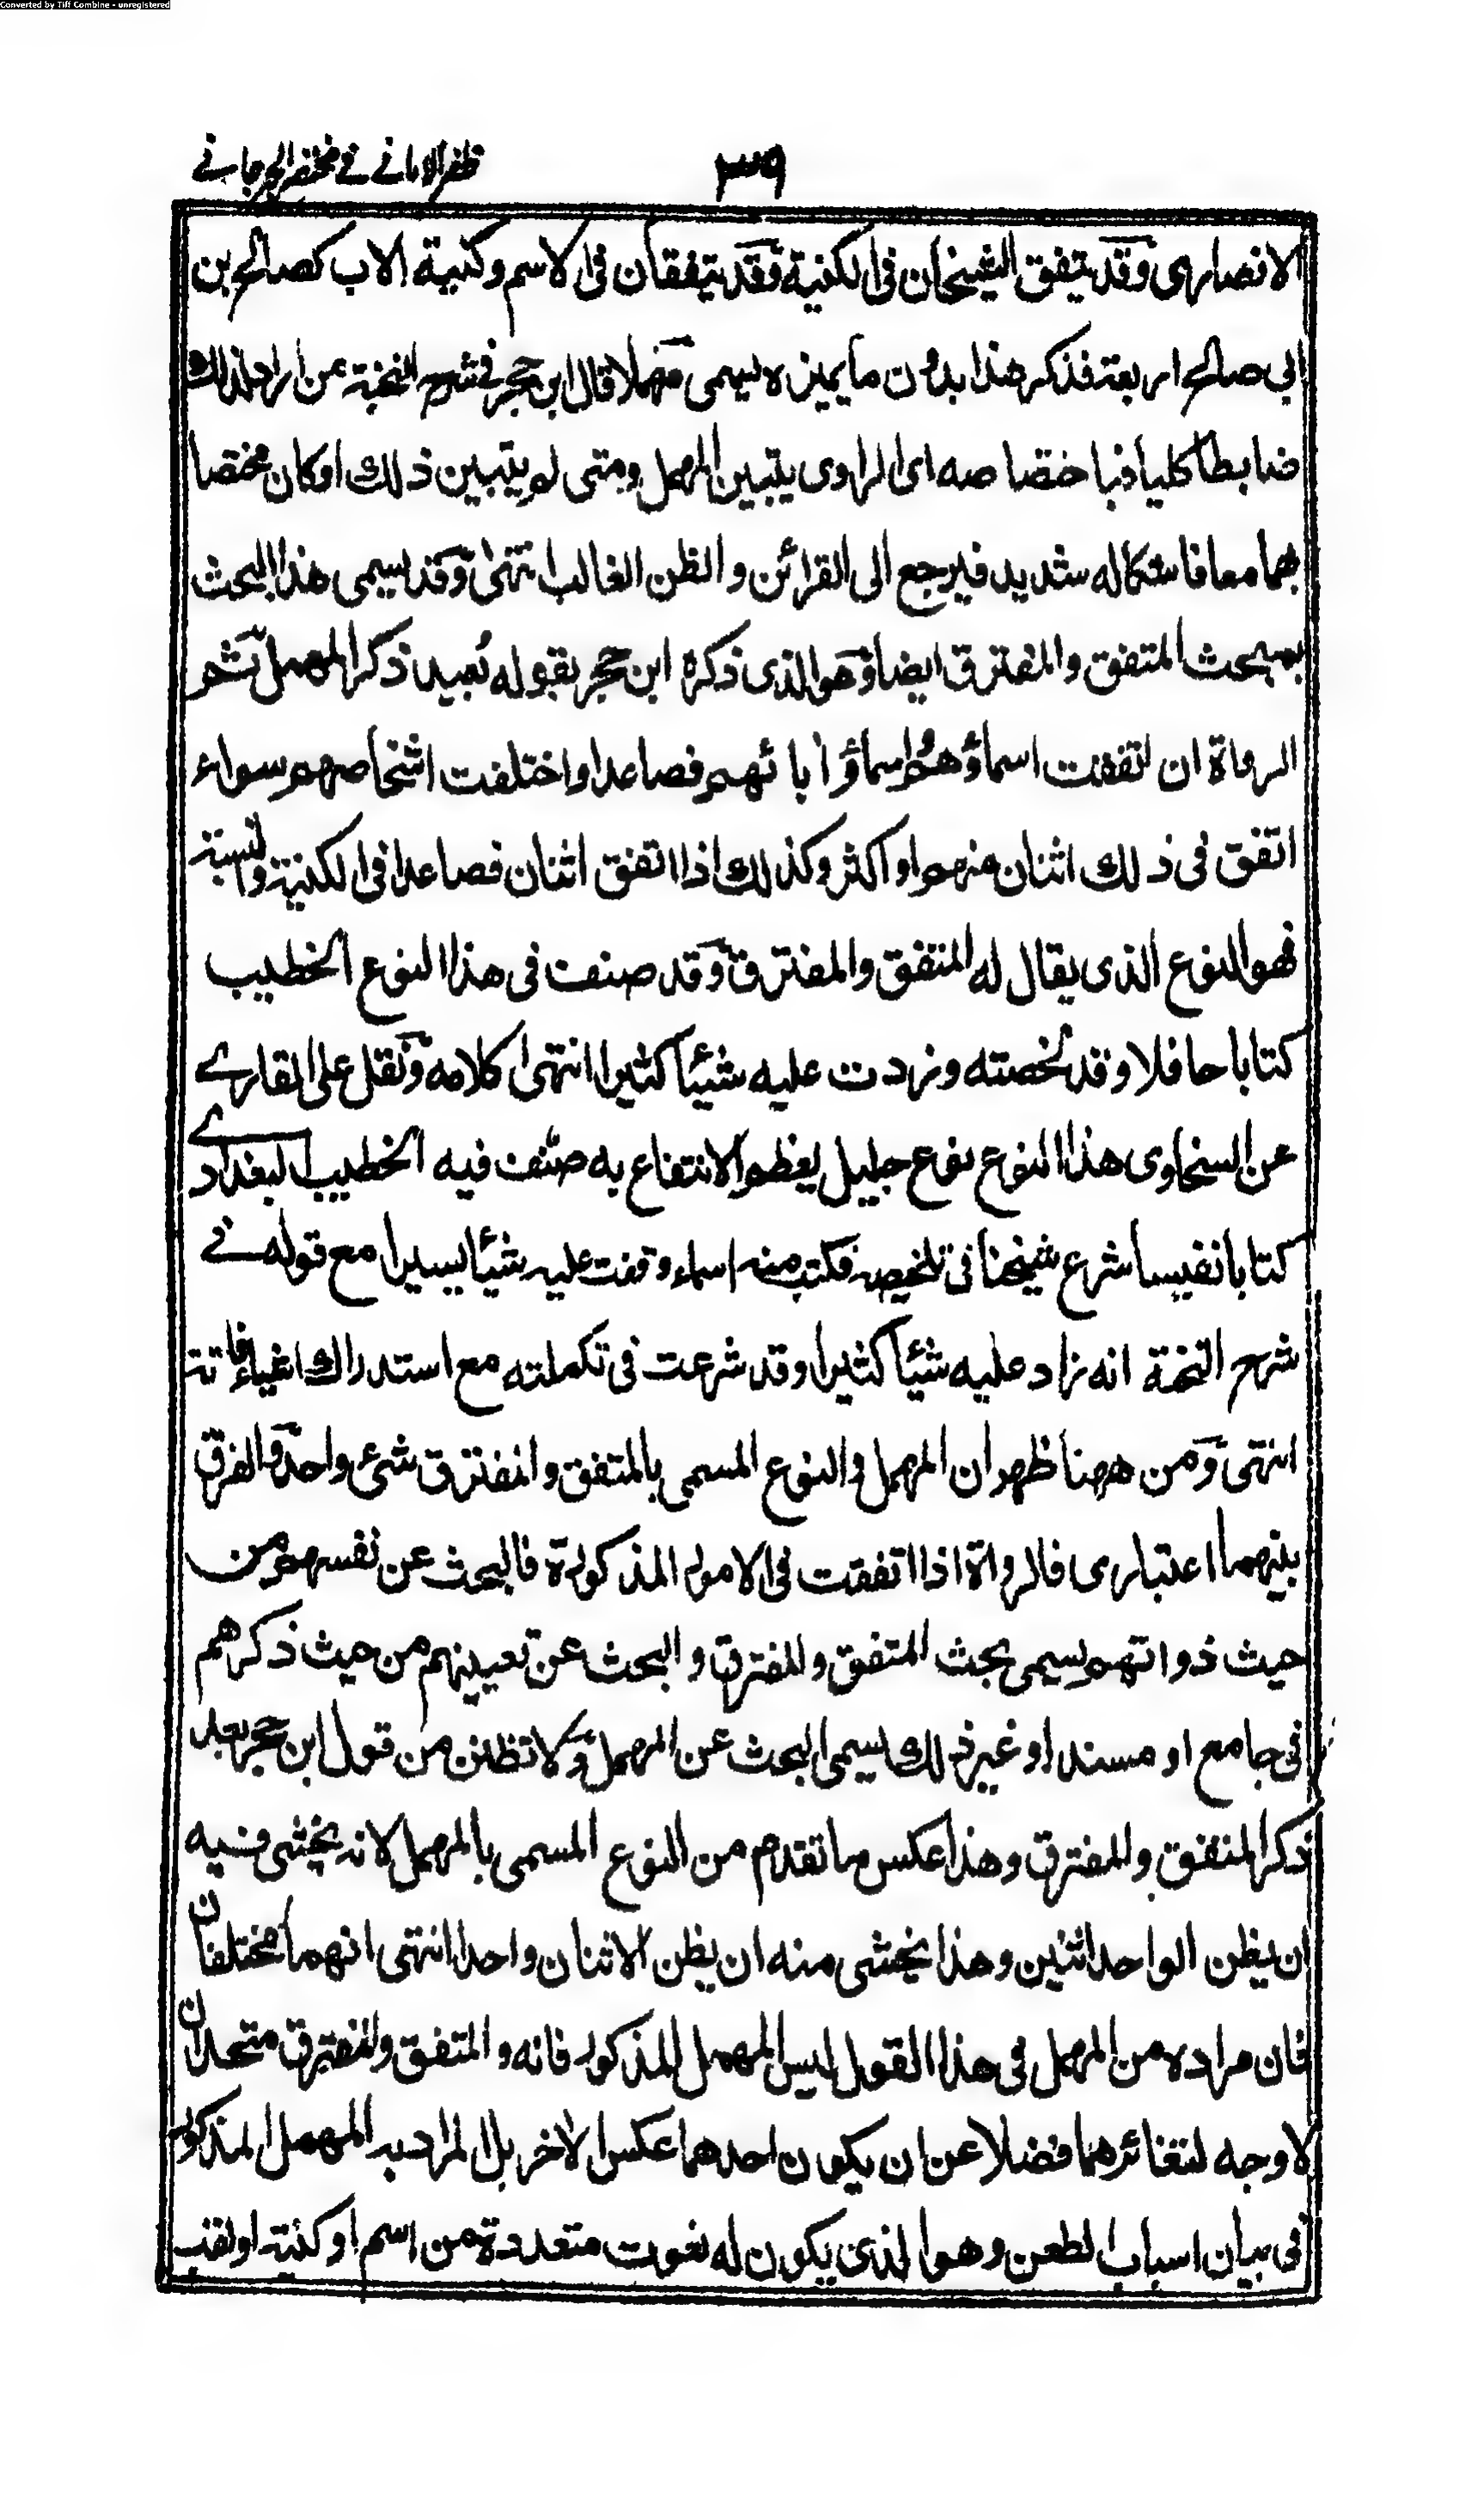 Converted by Tiff Combine - unregistered
ظفر الامانے فے مختصر الجرجانے
٣٩
الانصاری وقد يتفق الشيخان فی الكنية وقد يتفقان فی الاسم وكنية الاب كصالح بن
ابی صالح اربعة فذكر هذا بدون ما يميزه يسمی مهملا قال ابن حجر فی شرح النخبة من اراد لذلك
ضابطا كليا فباختصاصه ای الراوی يتبين المهمل ومتی لم يتبين ذلك او كان مختصا
بهما معا فاشكاله شديد فيرجع الی القرائن والظن الغالب انتهی وقد يسمی هذا البحث
ببحث المتفق والمفترق ايضا وهو الذی ذكره ابن حجر بقوله بعيد ذكر المهمل ثم
الرواة ان اتفقت اسماؤهم واسماؤ ابائهم فصاعدا واختلفت اشخاصهم سواء
اتفق فی ذلك اثنان منهم او اكثر وكذلك اذا اتفق اثنان فصاعدا فی الكنية والنسبة
فهو النوع الذی يقال له المتفق والمفترق وقد صنف فی هذا النوع الخطيب
كتابا حافلا وقد لخصته وزدت عليه شيئا كثيرا انتهی كلامه ونقل علی القارے
عن السخاوی هذا النوع نوع جليل يعظم الانتفاع به صنف فيه الخطيب البغدادے
كتابا نفيسا شرع شيخنا فی تلخيصه فكتب منه اسماء وقفت عليه شيئا يسيرا مع قوله فے
شرح النخبة انه زاد عليه شيئا كثيرا وقد شرعت فی تكملته مع استدراك اشياء فاتته
انتهی ومن ههنا ظهر ان المهمل والنوع المسمی بالمتفق والمفترق شیء واحد والفرق
بينهما اعتباری فالرواة اذا اتفقت فی الامور المذكورة فالبحث عن نفسهم من
حيث ذواتهم يسمی بحث المتفق والمفترق والبحث عن تعيينهم من حيث ذكرهم
فی جامع او مسند او غير ذلك يسمی البحث عن المهمل ولا تظنن من قول ابن حجر بعد
ذكر المتفق والمفترق وهذا عكس ما تقدم من النوع المسمی بالمهمل لانه يخشی فيه
ان يظن الواحد اثنين وهذا يخشی منه ان يظن الاثنان واحدا انتهی انهما مختلفان
فان مراده من المهمل فی هذا القول ليس المهمل المذكور فانه والمتفق والمفترق متحدان
لا وجه لتغائرهما فضلا عن ان يكون احدهما عكس الاخر بل المراد به المهمل المذكور
فی بيان اسباب الطعن وهو الذی يكون له نعوت متعددة من اسم او كنية او لقب